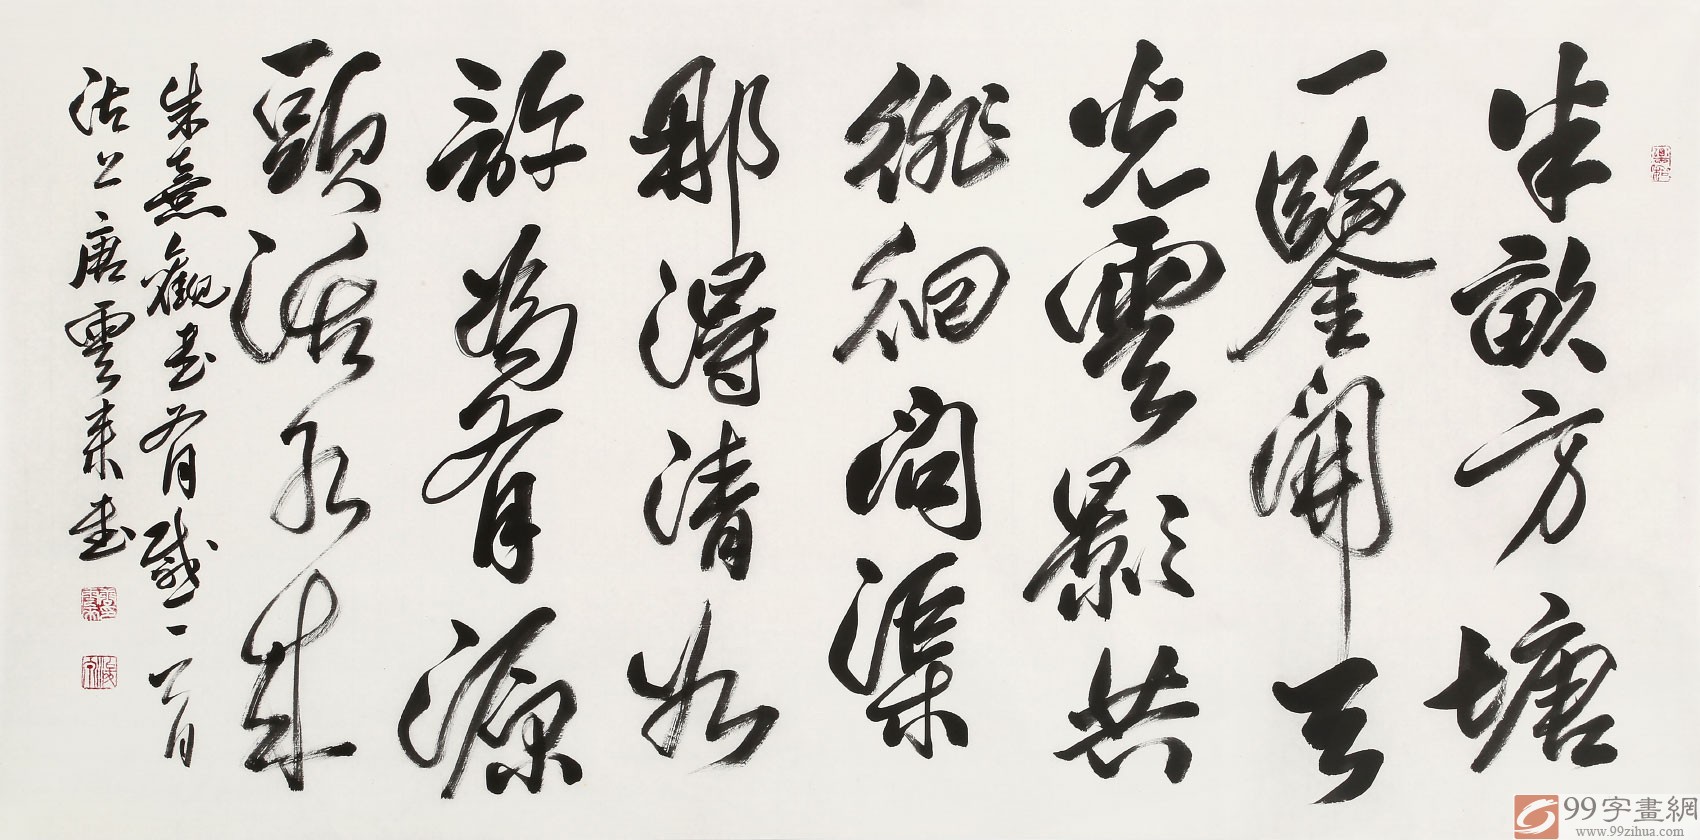 半畝方塘
一鑒開天
光雲影共
徘徊問渠
那得清如
許為有源
頭活水來
朱熹觀書有感一首
沽上唐雲來書
99字畫網
www.99zihua.com